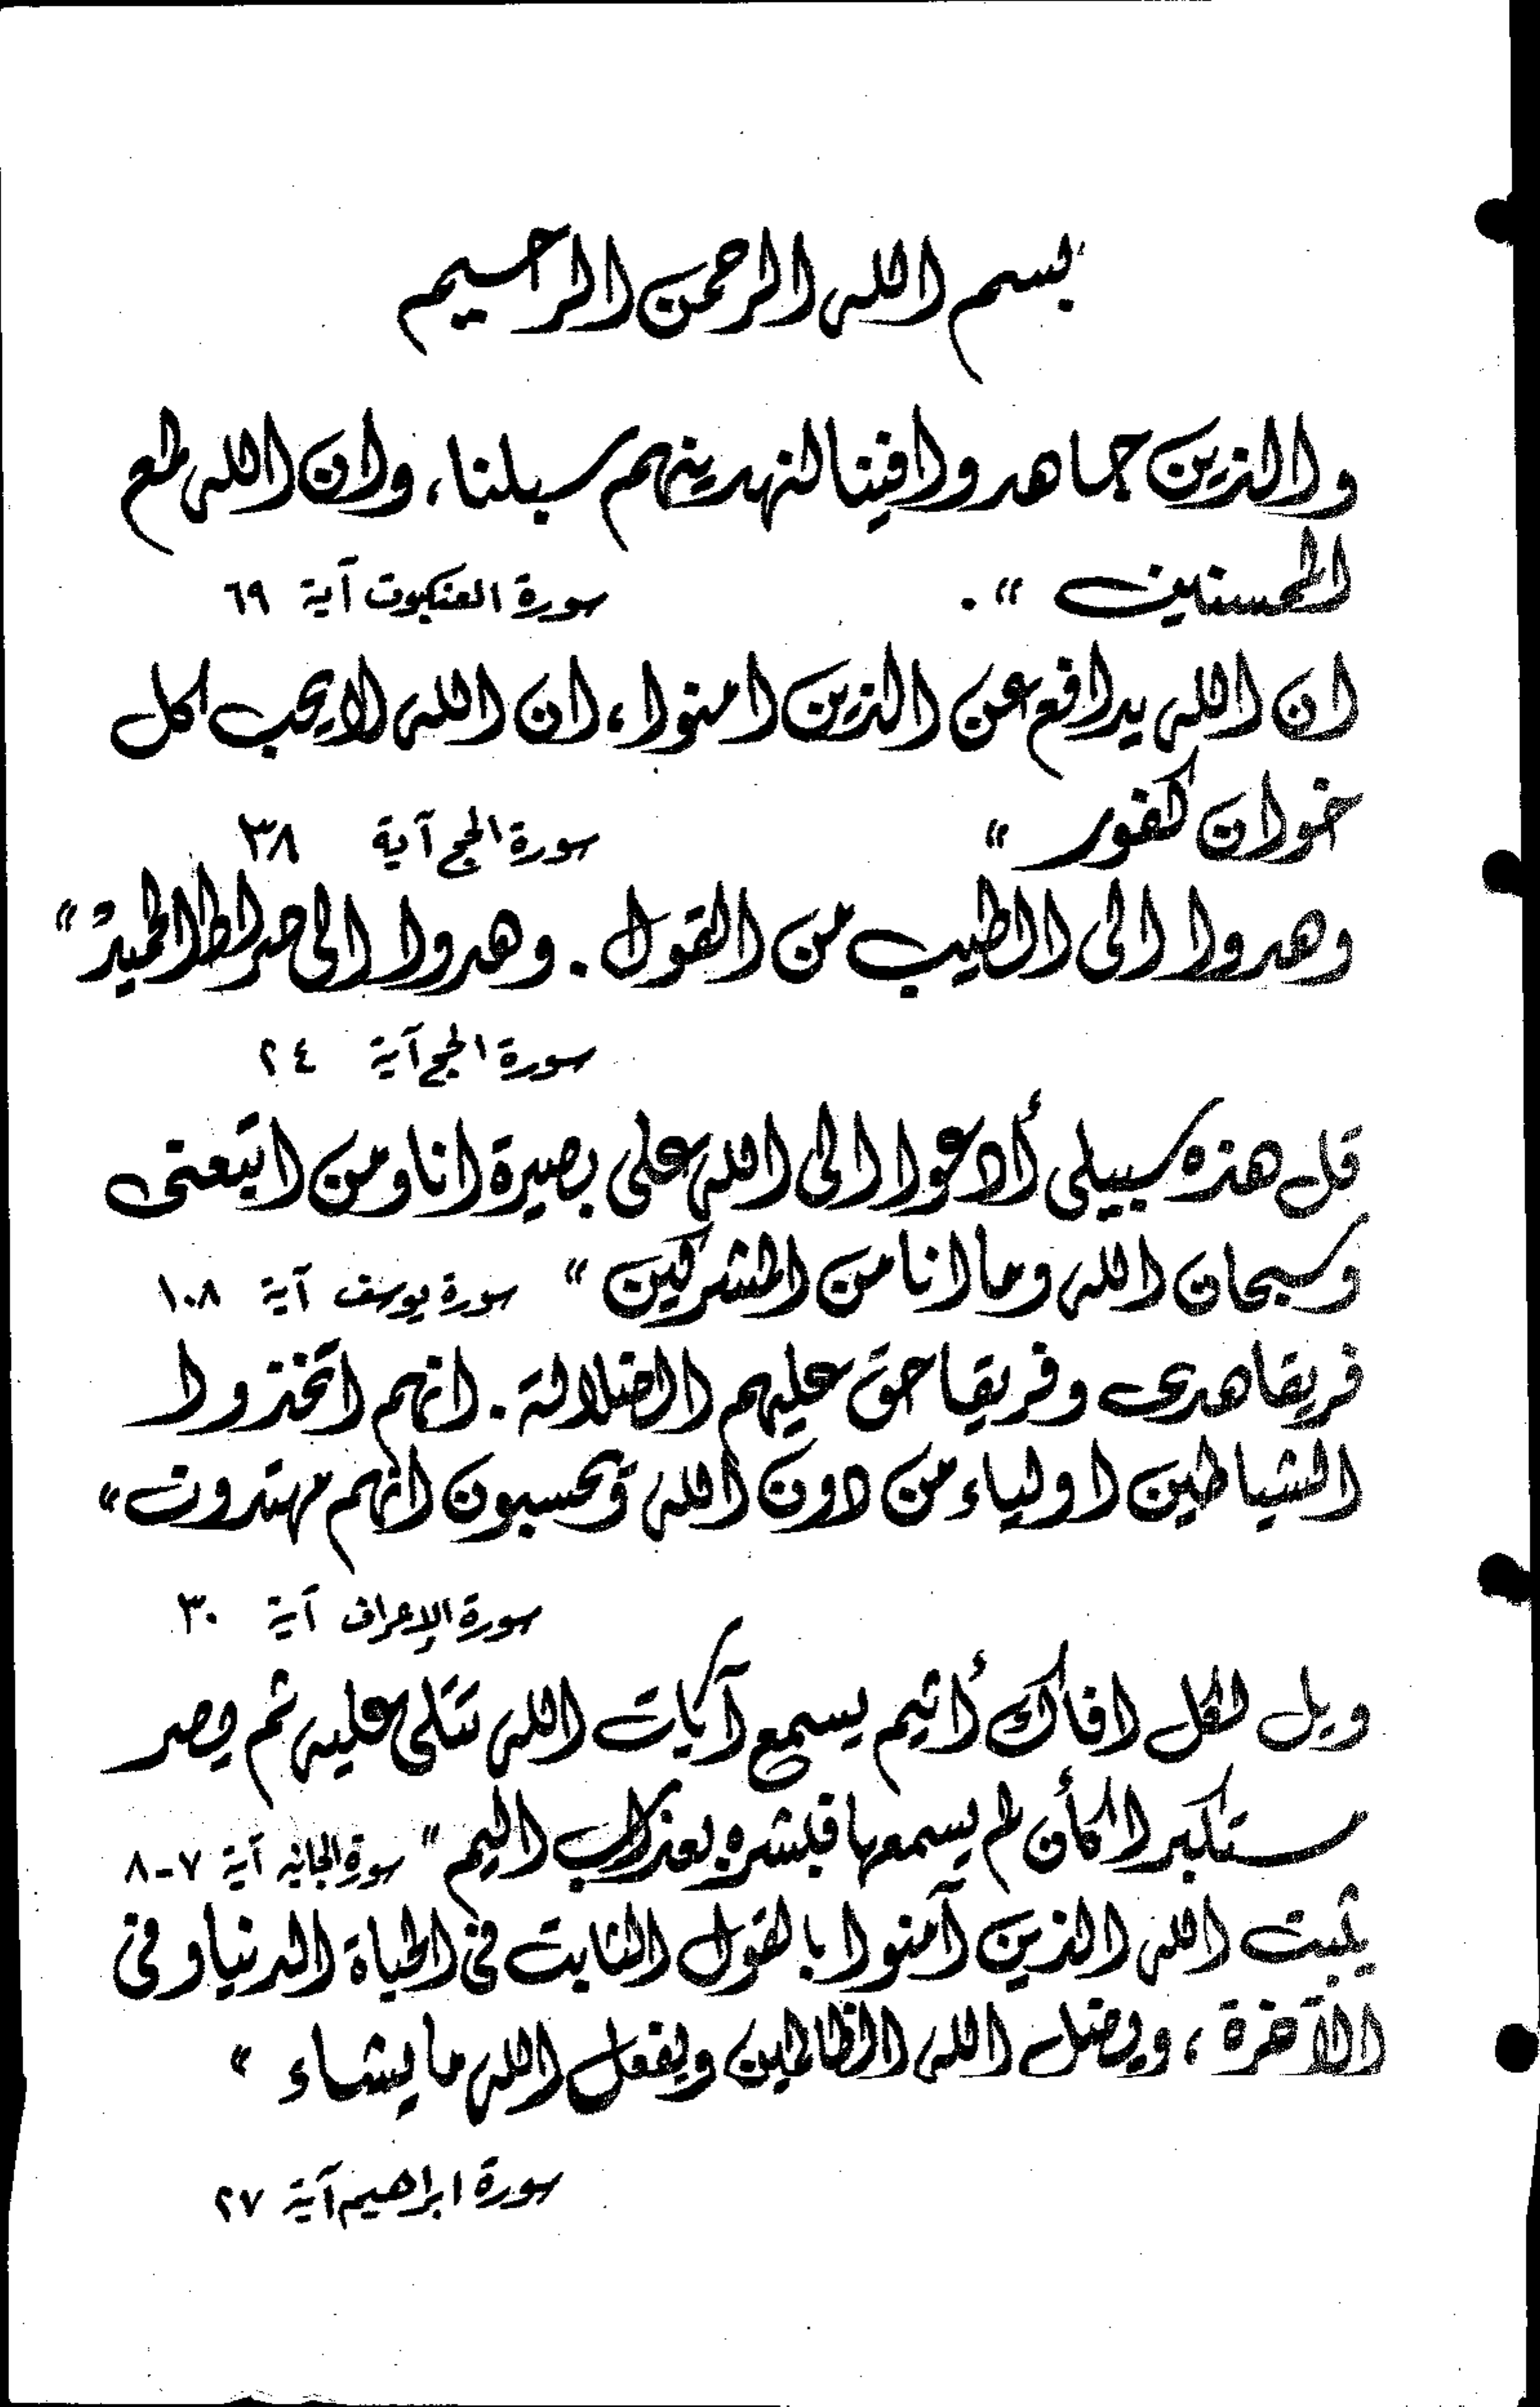 بسم الله الرحمن الرحيم
والذين جاهدوا فينا لنهدينهم سبلنا، وان الله لمع
المحسنين ».
سورة العنكبوت آية ٦٩
ان الله يدافع عن الذين امنوا، ان الله لا يحب كل
خوان كفور »
سورة الحج آية ٣٨
وهدوا الى الطيب من القول. وهدوا الى صراط الحميد »
سورة الحج آية ٢٤
قل هذه سبيلى أدعوا الى الله على بصيرة انا ومن اتبعنى
وسبحان الله وما انا من المشركين » سورة يوسف آية ١٠٨
فريقا هدى وفريقا حق عليهم الضلالة. انهم اتخذوا
الشياطين اولياء من دون الله ويحسبون انهم مهتدون »
سورة الإعراف آية ٣٠
ويل لكل افاك أثيم يسمع آيات الله تتلى عليه ثم يصر
مستكبرا كأن لم يسمعها فبشره بعذاب اليم » سورة الجاثيه آية ٧-٨
يثبت الله الذين آمنوا بالقول الثابت فى الحياة الدنيا وفى
الآخرة، ويضل الله الظالمين ويفعل الله ما يشاء »
سورة ابراهيم آية ٢٧